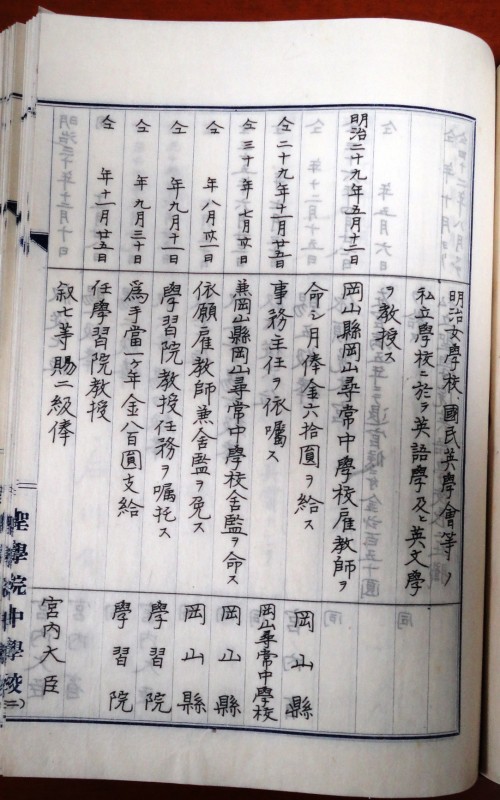 明治女學校、國民英學會等ノ
私立學校ニ於テ英語學及ヒ英文學
ヲ教授ス
明治二十九年五月十二日 岡山縣岡山尋常中學校雇教師ヲ
命シ月俸金六拾圓ヲ給ス 岡山縣
仝二十九年十一月廿五日 事務主任ヲ依囑ス 岡山尋常中學校
仝三十年七月 日 兼岡山縣岡山尋常中學校舍監ヲ命ス 岡山縣
仝 年八月 日 依願雇教師兼舍監ヲ免ス 岡山縣
仝 年九月十一日 學習院教授任務ヲ囑托ス 學習院
仝 年九月三十日 爲手當一ケ年金八百圓支給 學習院
仝 年十一月廿五日 任學習院教授
叙七等賜二級俸 宮内大臣
聖學院中學校